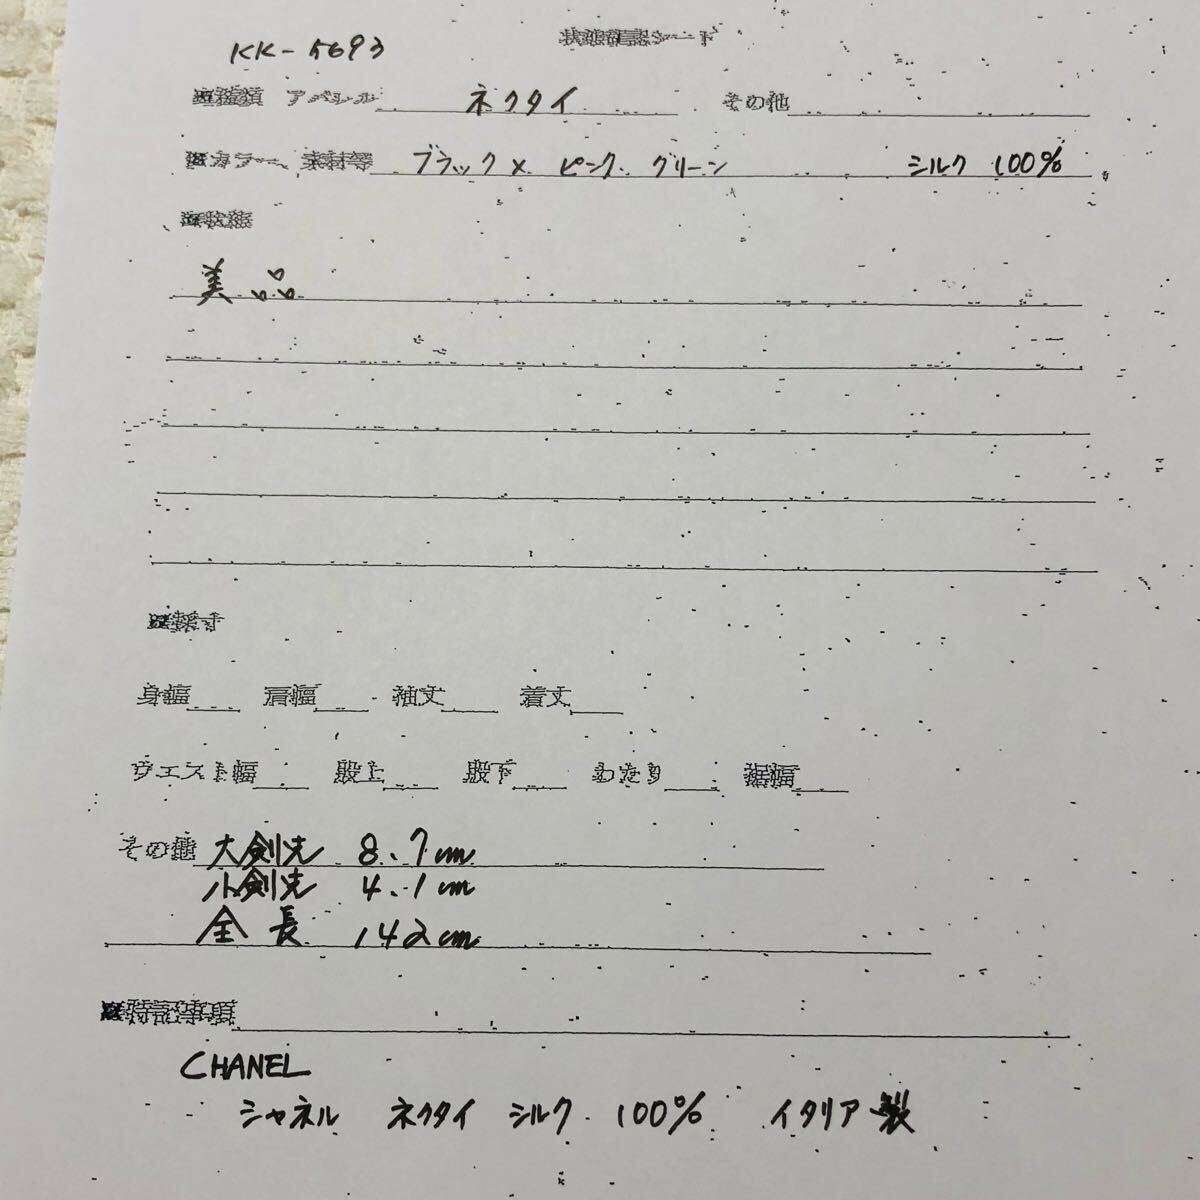 状態確認シート
KK-5693
■種類 アパレル ネクタイ その他
■カラー、素材等 ブラック× ピンク、グリーン シルク 100%
■状態
美品
■採寸
身幅 肩幅 袖丈 着丈
ウエスト幅 股上 股下 わたり 裾幅
その他 大剣先 8.7cm
小剣先 4.1cm
全長 142cm
■特記事項
CHANEL
シャネル ネクタイ シルク 100% イタリア製